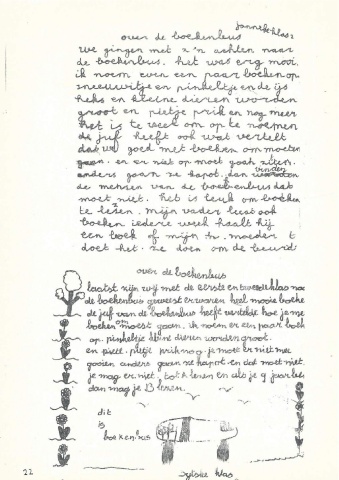 janneke klas 2
over de boekenbus
we gingen met z'n achten naar
de boekenbus. het was erg mooi.
ik noem even een paar boeken op
sneeuwitje en pinkeltje en de ijs
heks en kleine dieren worden
groot en pietje prik en nog meer
het is te veel om op te noemen
de juf heeft ook wat vertelt
dat we goed met boeken om moeten
gaan. en er niet op moet gaan zitten.
anders gaan ze kapot. dan vinden
de mensen van de boekenbus dat
moet niet. het is leuk om boeken
te lezen. mijn vader leest ook
boeken iedere week haalt hij
een boek of mijn moeder
doet het. ze doen om de beurt
over de boekenbus
laatst zijn wij met de eerste en tweede klas naar
de boekenbus geweest er waren heel mooie boeke
de juf van de boekenbus heeft vertelde hoe je me
boeken om moest gaan. ik noem er een paar boek
op. pinkeltje kleine dieren worden groot.
en pietje prik nog. je moet er niet mee
gooien anders gaan ze kapot en dat moet niet.
je mag er niet lezen en als je 9 jaar bent
dan mag je B lezen.
dit
is
boekenbus
22
sytske klas